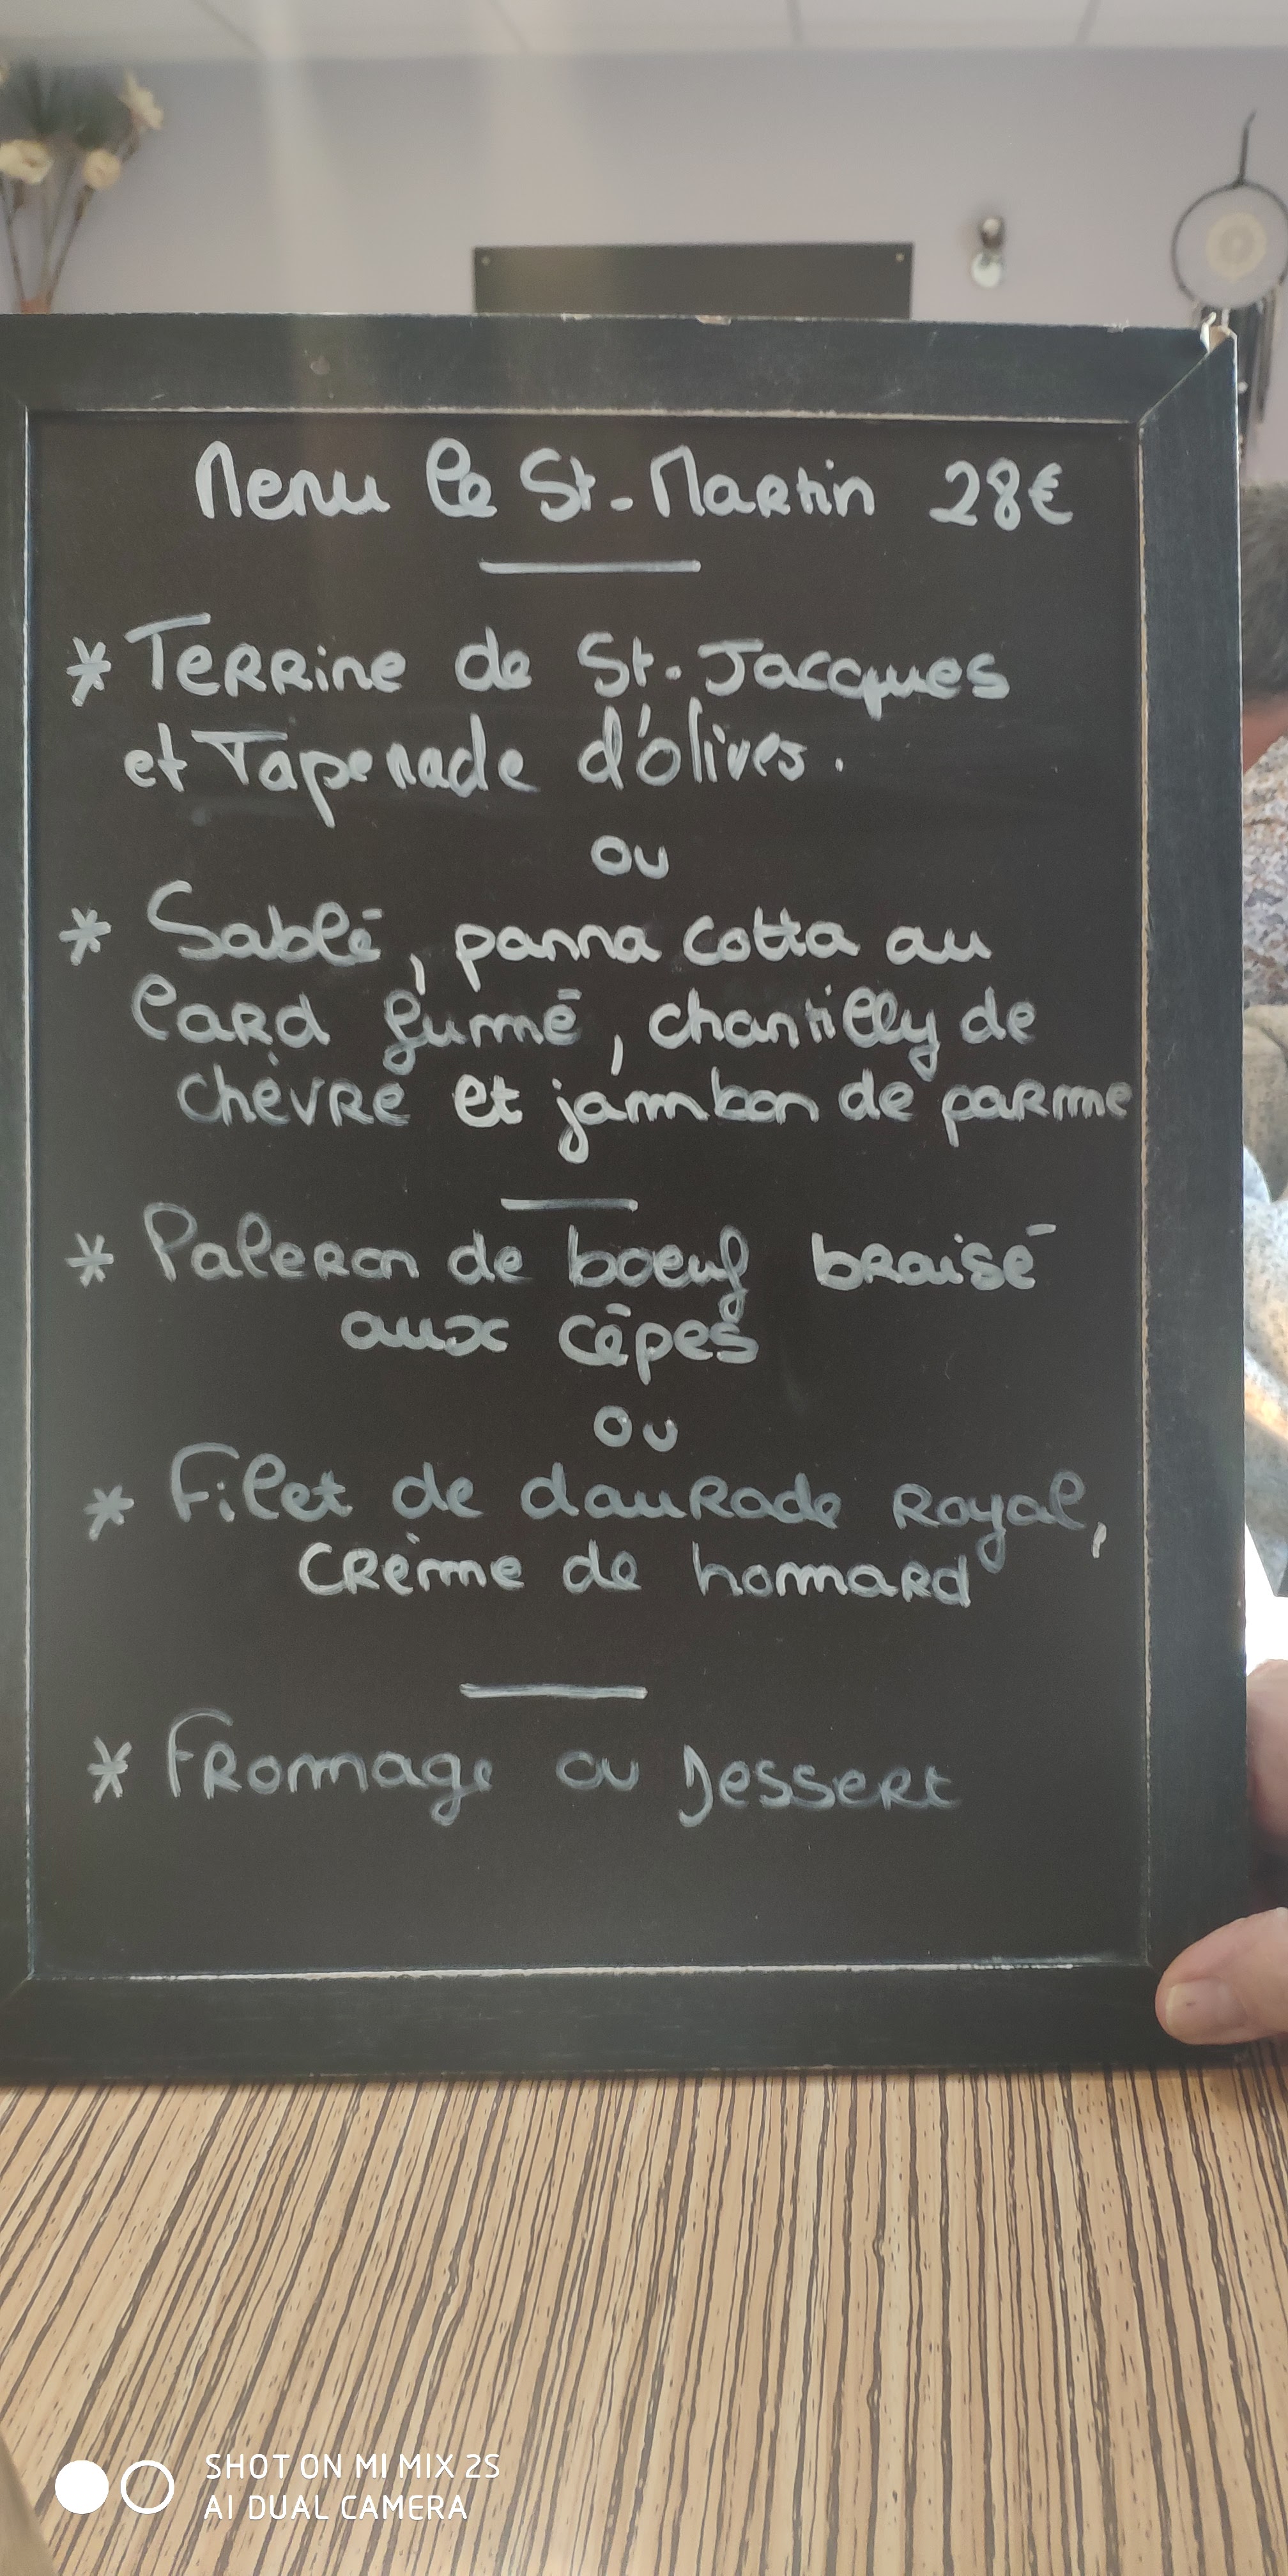 Menu le St-Martin 28€
* Terrine de St-Jacques
et Tapenade d'olives.
ou
* Sablé, panna cotta au
lard fumé, chantilly de
chèvre et jambon de parme
* Paleron de boeuf braisé
aux cêpes
ou
* Filet de daurade Royal,
crème de homard
* Fromage ou Dessert
SHOT ON MI MIX 2S
AI DUAL CAMERA